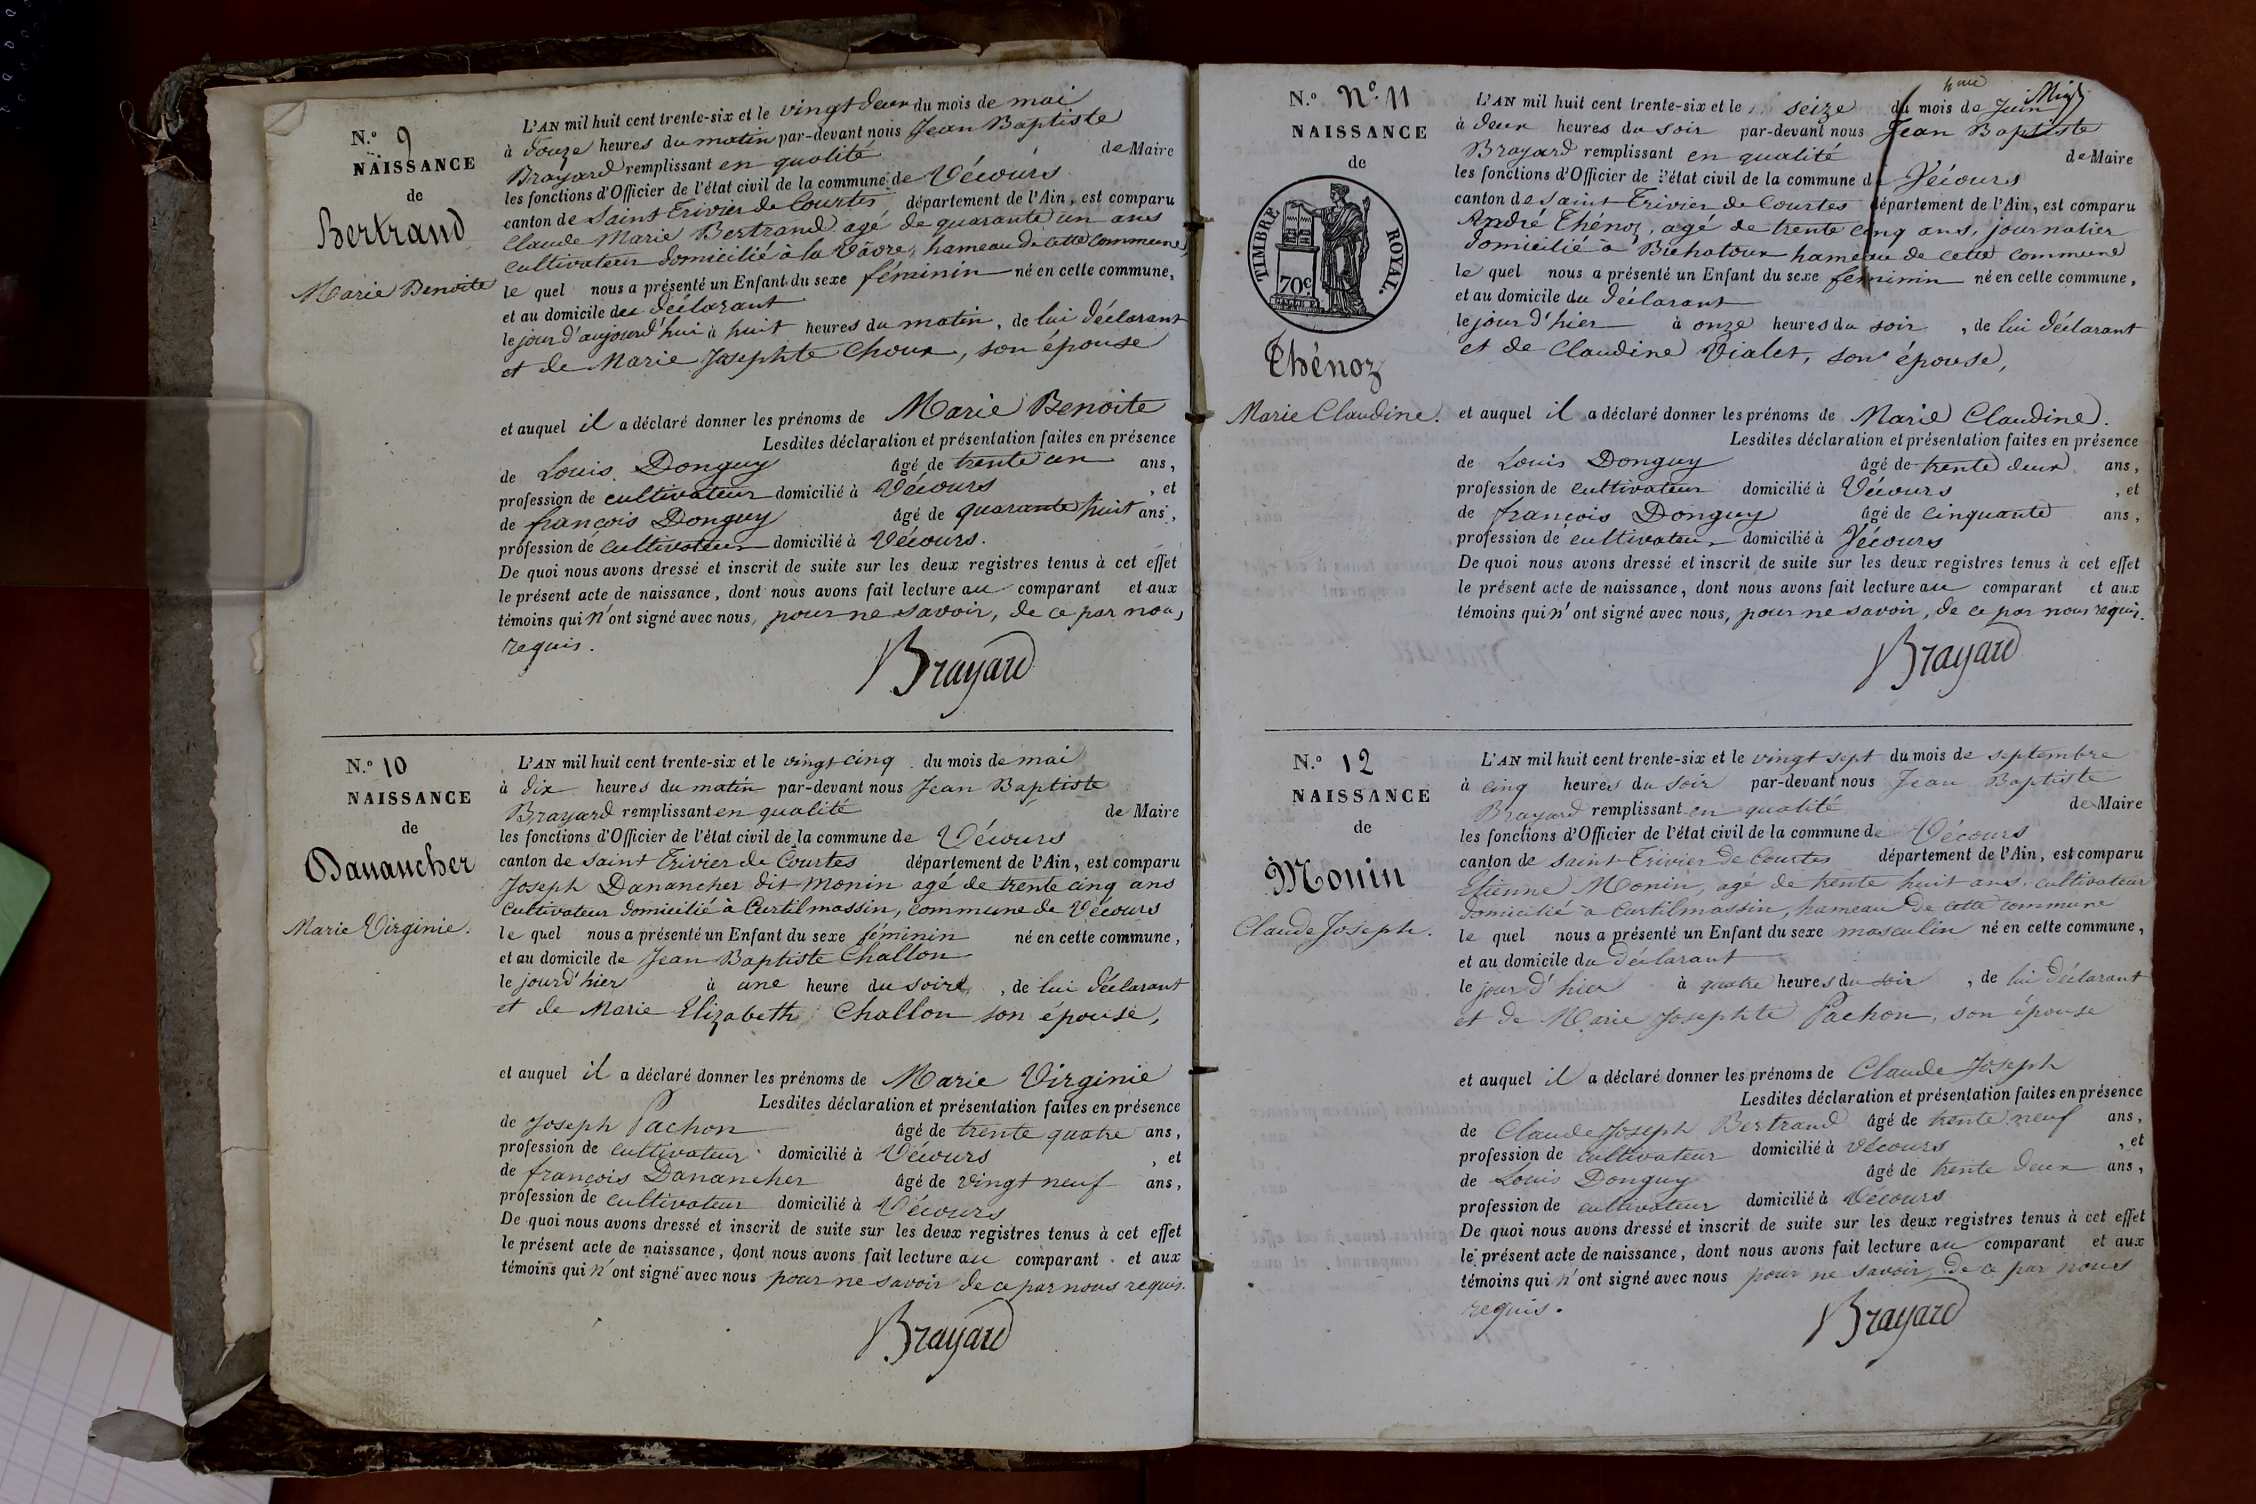 N.o 9
NAISSANCE
de
Bertrand
Marie Benoite
L'AN mil huit cent trente-six et le vingt deux du mois de mai
à douze heures du matin par-devant nous Jean Baptiste
Brayard remplissant en qualité de Maire
les fonctions d'Officier de l'état civil de la commune de Vécours
canton de Saint Trivier de Courtes département de l'Ain, est comparu
Claude Marie Bertrand agé de quarante un ans
cultivateur domicilié à la Vavre, hameau de cette commune,
le quel nous a présenté un Enfant du sexe féminin né en cette commune,
et au domicile du déclarant
le jour d'aujourd'hui à huit heures du matin, de lui déclarant
et de Marie Josephte Choux, son épouse
et auquel il a déclaré donner les prénoms de Marie Benoite
Lesdites déclaration et présentation faites en présence
de Louis Donguy âgé de trente un ans,
profession de cultivateur domicilié à Vécours, et
de françois Donguy âgé de quarante huit ans,
profession de cultivateur domicilié à Vécours.
De quoi nous avons dressé et inscrit de suite sur les deux registres tenus à cet effet
le présent acte de naissance, dont nous avons fait lecture au comparant et aux
témoins qui n'ont signé avec nous, pour ne savoir, de ce par nous
requis.
Brayard
N.o 10
NAISSANCE
de
Danancher
Marie Virginie.
L'AN mil huit cent trente-six et le vingt cinq du mois de mai
à dix heures du matin par-devant nous Jean Baptiste
Brayard remplissant en qualité de Maire
les fonctions d'Officier de l'état civil de la commune de Vécours
canton de Saint Trivier de Courtes département de l'Ain, est comparu
Joseph Danancher dit Monin agé de trente cinq ans
cultivateur domicilié à Curtilmassin, commune de Vécours
le quel nous a présenté un Enfant du sexe féminin né en cette commune,
et au domicile de Jean Baptiste Challon
le jour d'hier à une heure du soir, de lui déclarant
et de Marie Elizabeth Challon son épouse,
et auquel il a déclaré donner les prénoms de Marie Virginie
Lesdites déclaration et présentation faites en présence
de Joseph Pachon âgé de trente quatre ans,
profession de cultivateur domicilié à Vécours, et
de françois Danancher âgé de vingt neuf ans,
profession de cultivateur domicilié à Vécours
De quoi nous avons dressé et inscrit de suite sur les deux registres tenus à cet effet
le présent acte de naissance, dont nous avons fait lecture au comparant et aux
témoins qui n'ont signé avec nous pour ne savoir de ce par nous requis.
Brayard
N.o No 11
NAISSANCE
de
TIMBRE ROYAL.
70c
Thénoz
Marie Claudine.
L'AN mil huit cent trente-six et le seize du mois de Juin
à deux heures du soir par-devant nous Jean Baptiste
Brayard remplissant en qualité de Maire
les fonctions d'Officier de l'état civil de la commune de Vécours
canton de Saint Trivier de Courtes département de l'Ain, est comparu
André Thénoz, agé de trente cinq ans, journalier
domicilié à Buchatoux hameau de cette commune
le quel nous a présenté un Enfant du sexe feminin né en cette commune,
et au domicile du déclarant
le jour d'hier à onze heures du soir, de lui déclarant
et de Claudine Vialet, son épouse,
et auquel il a déclaré donner les prénoms de Marie Claudine.
Lesdites déclaration et présentation faites en présence
de Louis Donguy âgé de trente deux ans,
profession de cultivateur domicilié à Vécours, et
de françois Donguy âgé de cinquante ans,
profession de cultivateur domicilié à Vécours
De quoi nous avons dressé et inscrit de suite sur les deux registres tenus à cet effet
le présent acte de naissance, dont nous avons fait lecture au comparant et aux
témoins qui n'ont signé avec nous, pour ne savoir, de ce par nous requis.
Brayard
N.o 12
NAISSANCE
de
Monin
Claude Joseph.
L'AN mil huit cent trente-six et le vingt sept du mois de septembre
à cinq heures du soir par-devant nous Jean Baptiste
Brayard remplissant en qualité de Maire
les fonctions d'Officier de l'état civil de la commune de Vécours
canton de Saint Trivier de Courtes département de l'Ain, est comparu
Etienne Monin, agé de trente huit ans, cultivateur
domicilié à Curtilmassin, hameau de cette commune
le quel nous a présenté un Enfant du sexe masculin né en cette commune,
et au domicile du déclarant
le jour d'hier à quatre heures du soir, de lui déclarant
et de Marie Josephte Pachon, son épouse
et auquel il a déclaré donner les prénoms de Claude Joseph
Lesdites déclaration et présentation faites en présence
de Claude Joseph Bertrand âgé de trente neuf ans,
profession de cultivateur domicilié à Vécours, et
de Louis Donguy âgé de trente deux ans,
profession de cultivateur domicilié à Vécours
De quoi nous avons dressé et inscrit de suite sur les deux registres tenus à cet effet
le présent acte de naissance, dont nous avons fait lecture au comparant et aux
témoins qui n'ont signé avec nous pour ne savoir, de ce par nous
requis.
Brayard